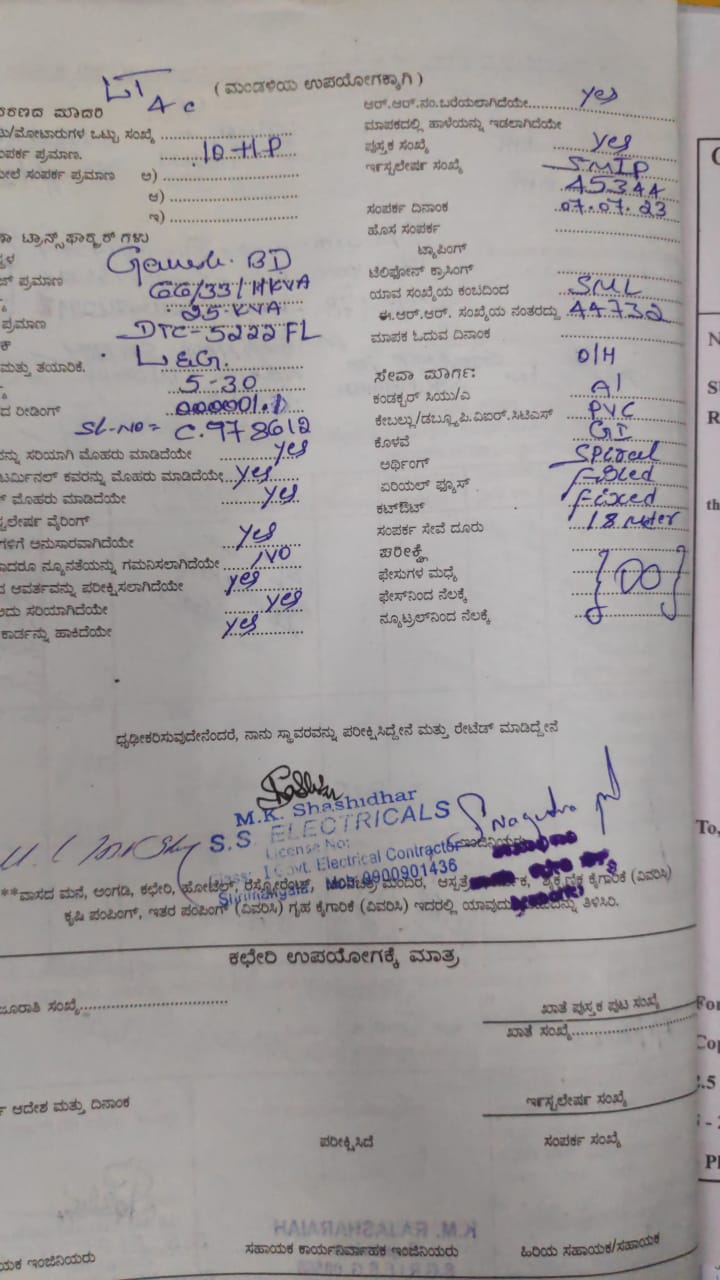 LT 4c
( ಮಂಡಳಿಯ ಉಪಯೋಗಕ್ಕಾಗಿ )
ಕರಣದ ಮಾದರಿ
ಟು/ಮೋಟಾರುಗಳ ಒಟ್ಟು ಸಂಖ್ಯೆ
ಂಪರ್ಕ ಪ್ರಮಾಣ. 10-HP
ಮೇಲೆ ಸಂಪರ್ಕ ಪ್ರಮಾಣ ಅ)
ಆ)
ಇ)
ಣಾ ಟ್ರಾನ್ಸ್‌ಫಾರ್ಮರ್ ಗಳು
್ಥಳ Ganesh. BD
ಜ್ ಪ್ರಮಾಣ 66/33/11KVA
25 KVA
ಪ್ರಮಾಣ DTC-5222 FL
ಮತ್ತು ತಯಾರಿಕೆ. L&G.
5-30
ದ ರೀಡಿಂಗ್ 000001.0
SL-NO= C.978612
ವನ್ನು ಸರಿಯಾಗಿ ಮೊಹರು ಮಾಡಿದೆಯೇ yes
ಟರ್ಮಿನಲ್ ಕವರನ್ನು ಮೊಹರು ಮಾಡಿದೆಯೇ yes
್ ಮೊಹರು ಮಾಡಿದೆಯೇ yes
ಸ್ಟಲೇಷರ್ ವೈರಿಂಗ್
ಗಳಿಗೆ ಅನುಸಾರವಾಗಿದೆಯೇ yes
ಾದರೂ ನ್ಯೂನತೆಯನ್ನು ಗಮನಿಸಲಾಗಿದೆಯೇ NO
ನ ಆವರ್ತವನ್ನು ಪರೀಕ್ಷಿಸಲಾಗಿದೆಯೇ yes
ಅದು ಸರಿಯಾಗಿದೆಯೇ yes
ಕಾರ್ಡನ್ನು ಹಾಕಿದೆಯೇ yes
ಆರ್.ಆರ್.ನಂ.ಬರೆಯಲಾಗಿದೆಯೇ yes
ಮಾಪಕದಲ್ಲಿ ಹಾಳೆಯನ್ನು ಇಡಲಾಗಿದೆಯೇ
ಪುಸ್ತಕ ಸಂಖ್ಯೆ yes
ಇನ್ಸ್ಟಲೇಷನ್ ಸಂಖ್ಯೆ SMIP
45344
ಸಂಪರ್ಕ ದಿನಾಂಕ 07.07.23
ಹೊಸ ಸಂಪರ್ಕ
ಟ್ಯಾಪಿಂಗ್
ಟೆಲಿಫೋನ್ ಕ್ರಾಸಿಂಗ್
ಯಾವ ಸಂಖ್ಯೆಯ ಕಂಬದಿಂದ SML
ಈ.ಆರ್.ಆರ್. ಸಂಖ್ಯೆಯ ನಂತರದ್ದು 44732
ಮಾಪಕ ಓದುವ ದಿನಾಂಕ
ಸೇವಾ ಮಾರ್ಗ: O/H
ಕಂಡಕ್ಟರ್ ಸಿಯು/ಎ Al
ಕೇಬಲ್ಲು/ಡಬ್ಲ್ಯೂ.ಪಿ.ವಿಐರ್.ಸಿಟಿಎಸ್ PVC
ಕೊಳವೆ GI
ಅರ್ಥಿಂಗ್ Spiral
ಏರಿಯಲ್ ಫ್ಯೂಸ್ Fixed
ಕಟ್‌ಔಟ್ Fixed
ಸಂಪರ್ಕ ಸೇವೆ ದೂರು 18 meter
ಪರೀಕ್ಷೆ
ಫೇಸುಗಳ ಮಧ್ಯೆ
ಫೇಸ್‌ನಿಂದ ನೆಲಕ್ಕೆ
ನ್ಯೂಟ್ರಲ್‌ನಿಂದ ನೆಲಕ್ಕೆ
ಧೃಢೀಕರಿಸುವುದೇನೆಂದರೆ, ನಾನು ಸ್ಥಾವರವನ್ನು ಪರೀಕ್ಷಿಸಿದ್ದೇನೆ ಮತ್ತು ರೇಟೆಡ್ ಮಾಡಿದ್ದೇನೆ
M.K. Shashidhar
S.S. ELECTRICALS
License No:
Class: I Govt. Electrical Contractor
Mob: 9900901436
**ವಾಸದ ಮನೆ, ಅಂಗಡಿ, ಕಛೇರಿ, ಹೋಟೆಲ್, ರೆಸ್ಟೋರೆಂಟ್, ಮಂದಿರ, ಆಸ್ಪತ್ರೆ ಕೈಗಾರಿಕೆ (ವಿವರಿಸಿ)
ಕೃಷಿ ಪಂಪಿಂಗ್, ಇತರ ಪಂಪಿಂಗ್ (ವಿವರಿಸಿ) ಗೃಹ ಕೈಗಾರಿಕೆ (ವಿವರಿಸಿ) ಇದರಲ್ಲಿ ತಿಳಿಸಿರಿ.
ಕಛೇರಿ ಉಪಯೋಗಕ್ಕೆ ಮಾತ್ರ
ಜೂರಾತಿ ಸಂಖ್ಯೆ
ಖಾತೆ ಪುಸ್ತಕ ಪುಟ ಸಂಖ್ಯೆ
ಖಾತೆ ಸಂಖ್ಯೆ
ಆದೇಶ ಮತ್ತು ದಿನಾಂಕ
ಇನ್ಸ್ಟಲೇಷನ್ ಸಂಖ್ಯೆ
ಪರೀಕ್ಷಿಸಿದೆ
ಸಂಪರ್ಕ ಸಂಖ್ಯೆ
ಯಕ ಇಂಜಿನಿಯರು
ಸಹಾಯಕ ಕಾರ್ಯನಿರ್ವಾಹಕ ಇಂಜಿನಿಯರು
ಹಿರಿಯ ಸಹಾಯಕ/ಸಹಾಯಕ
To,